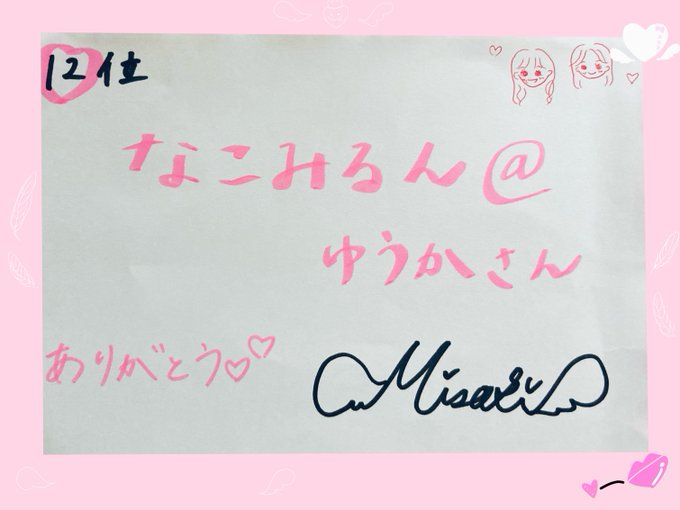 12位
なこみるん@
ゆうかさん
ありがとう♡♡
Misaki